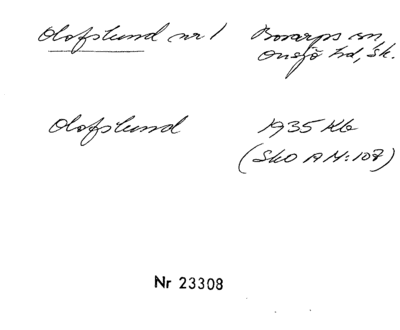 Olofslund nr 1 Bosarps sn,
Onsjö hd, Sk.
Olofslund 1935 Kb
(SkO AM:107)
Nr 23308